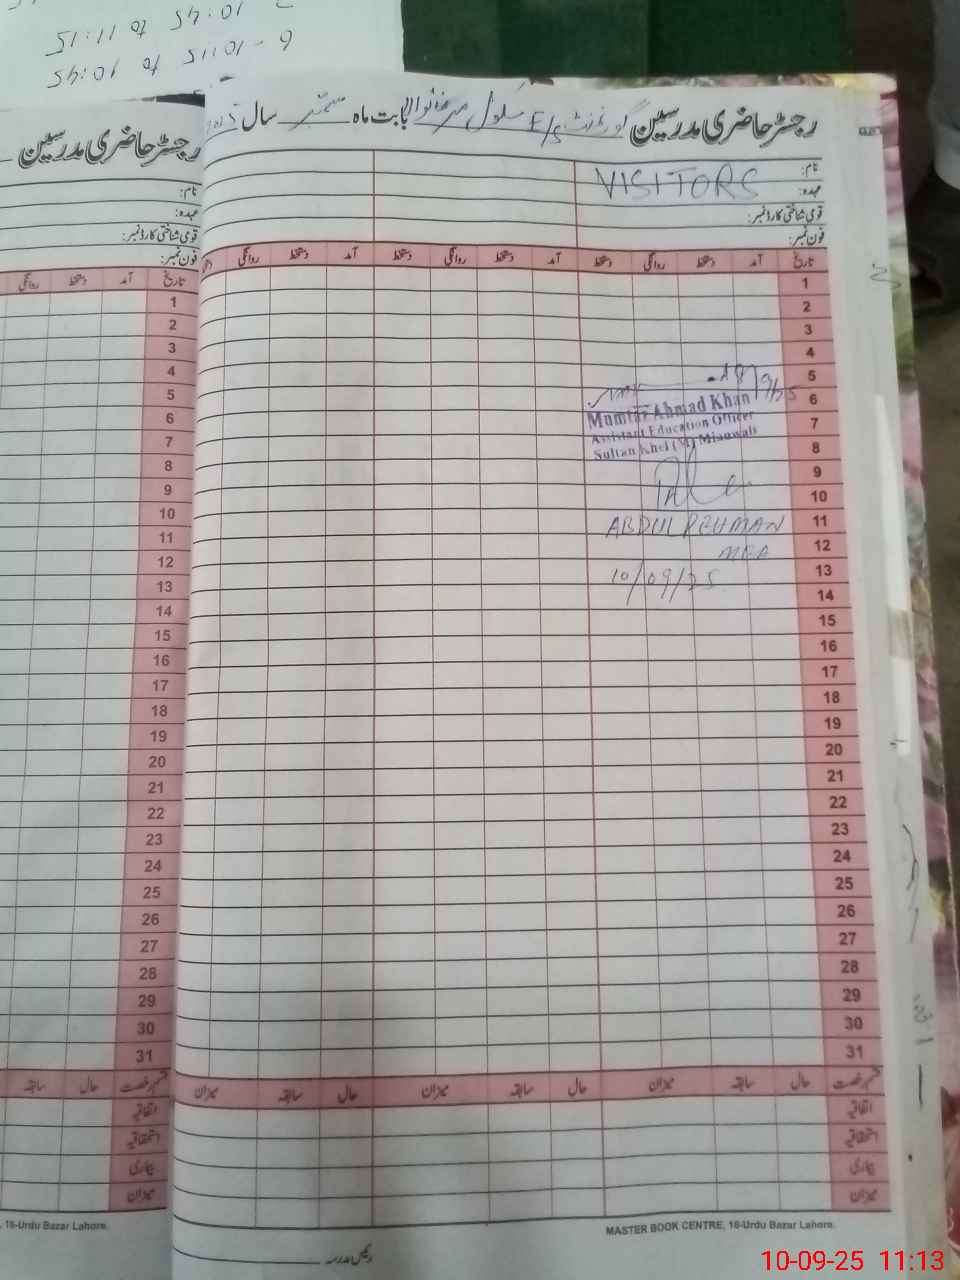 10:45 to 11:15
6 - 10:15 to 10:45
رجسٹر حاضری مدرسین گورنمنٹ E/S سکول بابت ماہ ستمبر سال 2025
نام: VISITORS
عہدہ:
قومی شناختی کارڈ نمبر:
فون نمبر:
تاریخ آمد دستخط روانگی دستخط آمد دستخط روانگی دستخط آمد دستخط روانگی
1
2
3
4
5
6
7
8
9
10
11
12
13
14
15
16
17
18
19
20
21
22
23
24
25
26
27
28
29
30
31
9/25
Mumtaz Ahmad Khan
Assistant Education Officer
Sultan Khel (M) Mianwali
ABDUL REHMAN
MEA
10/09/25
قسم رخصت حال سابقہ میزان حال سابقہ میزان حال سابقہ میزان
اتفاقیہ
استحقاقیہ
بیماری
میزان
MASTER BOOK CENTRE, 16-Urdu Bazar Lahore.
رئیس مدرسہ
رجسٹر حاضری مدرسین
نام:
عہدہ:
قومی شناختی کارڈ نمبر:
فون نمبر:
تاریخ آمد دستخط روانگی
1
2
3
4
5
6
7
8
9
10
11
12
13
14
15
16
17
18
19
20
21
22
23
24
25
26
27
28
29
30
31
قسم رخصت حال سابقہ
اتفاقیہ
استحقاقیہ
بیماری
میزان
, 16-Urdu Bazar Lahore.
10-09-25 11:13